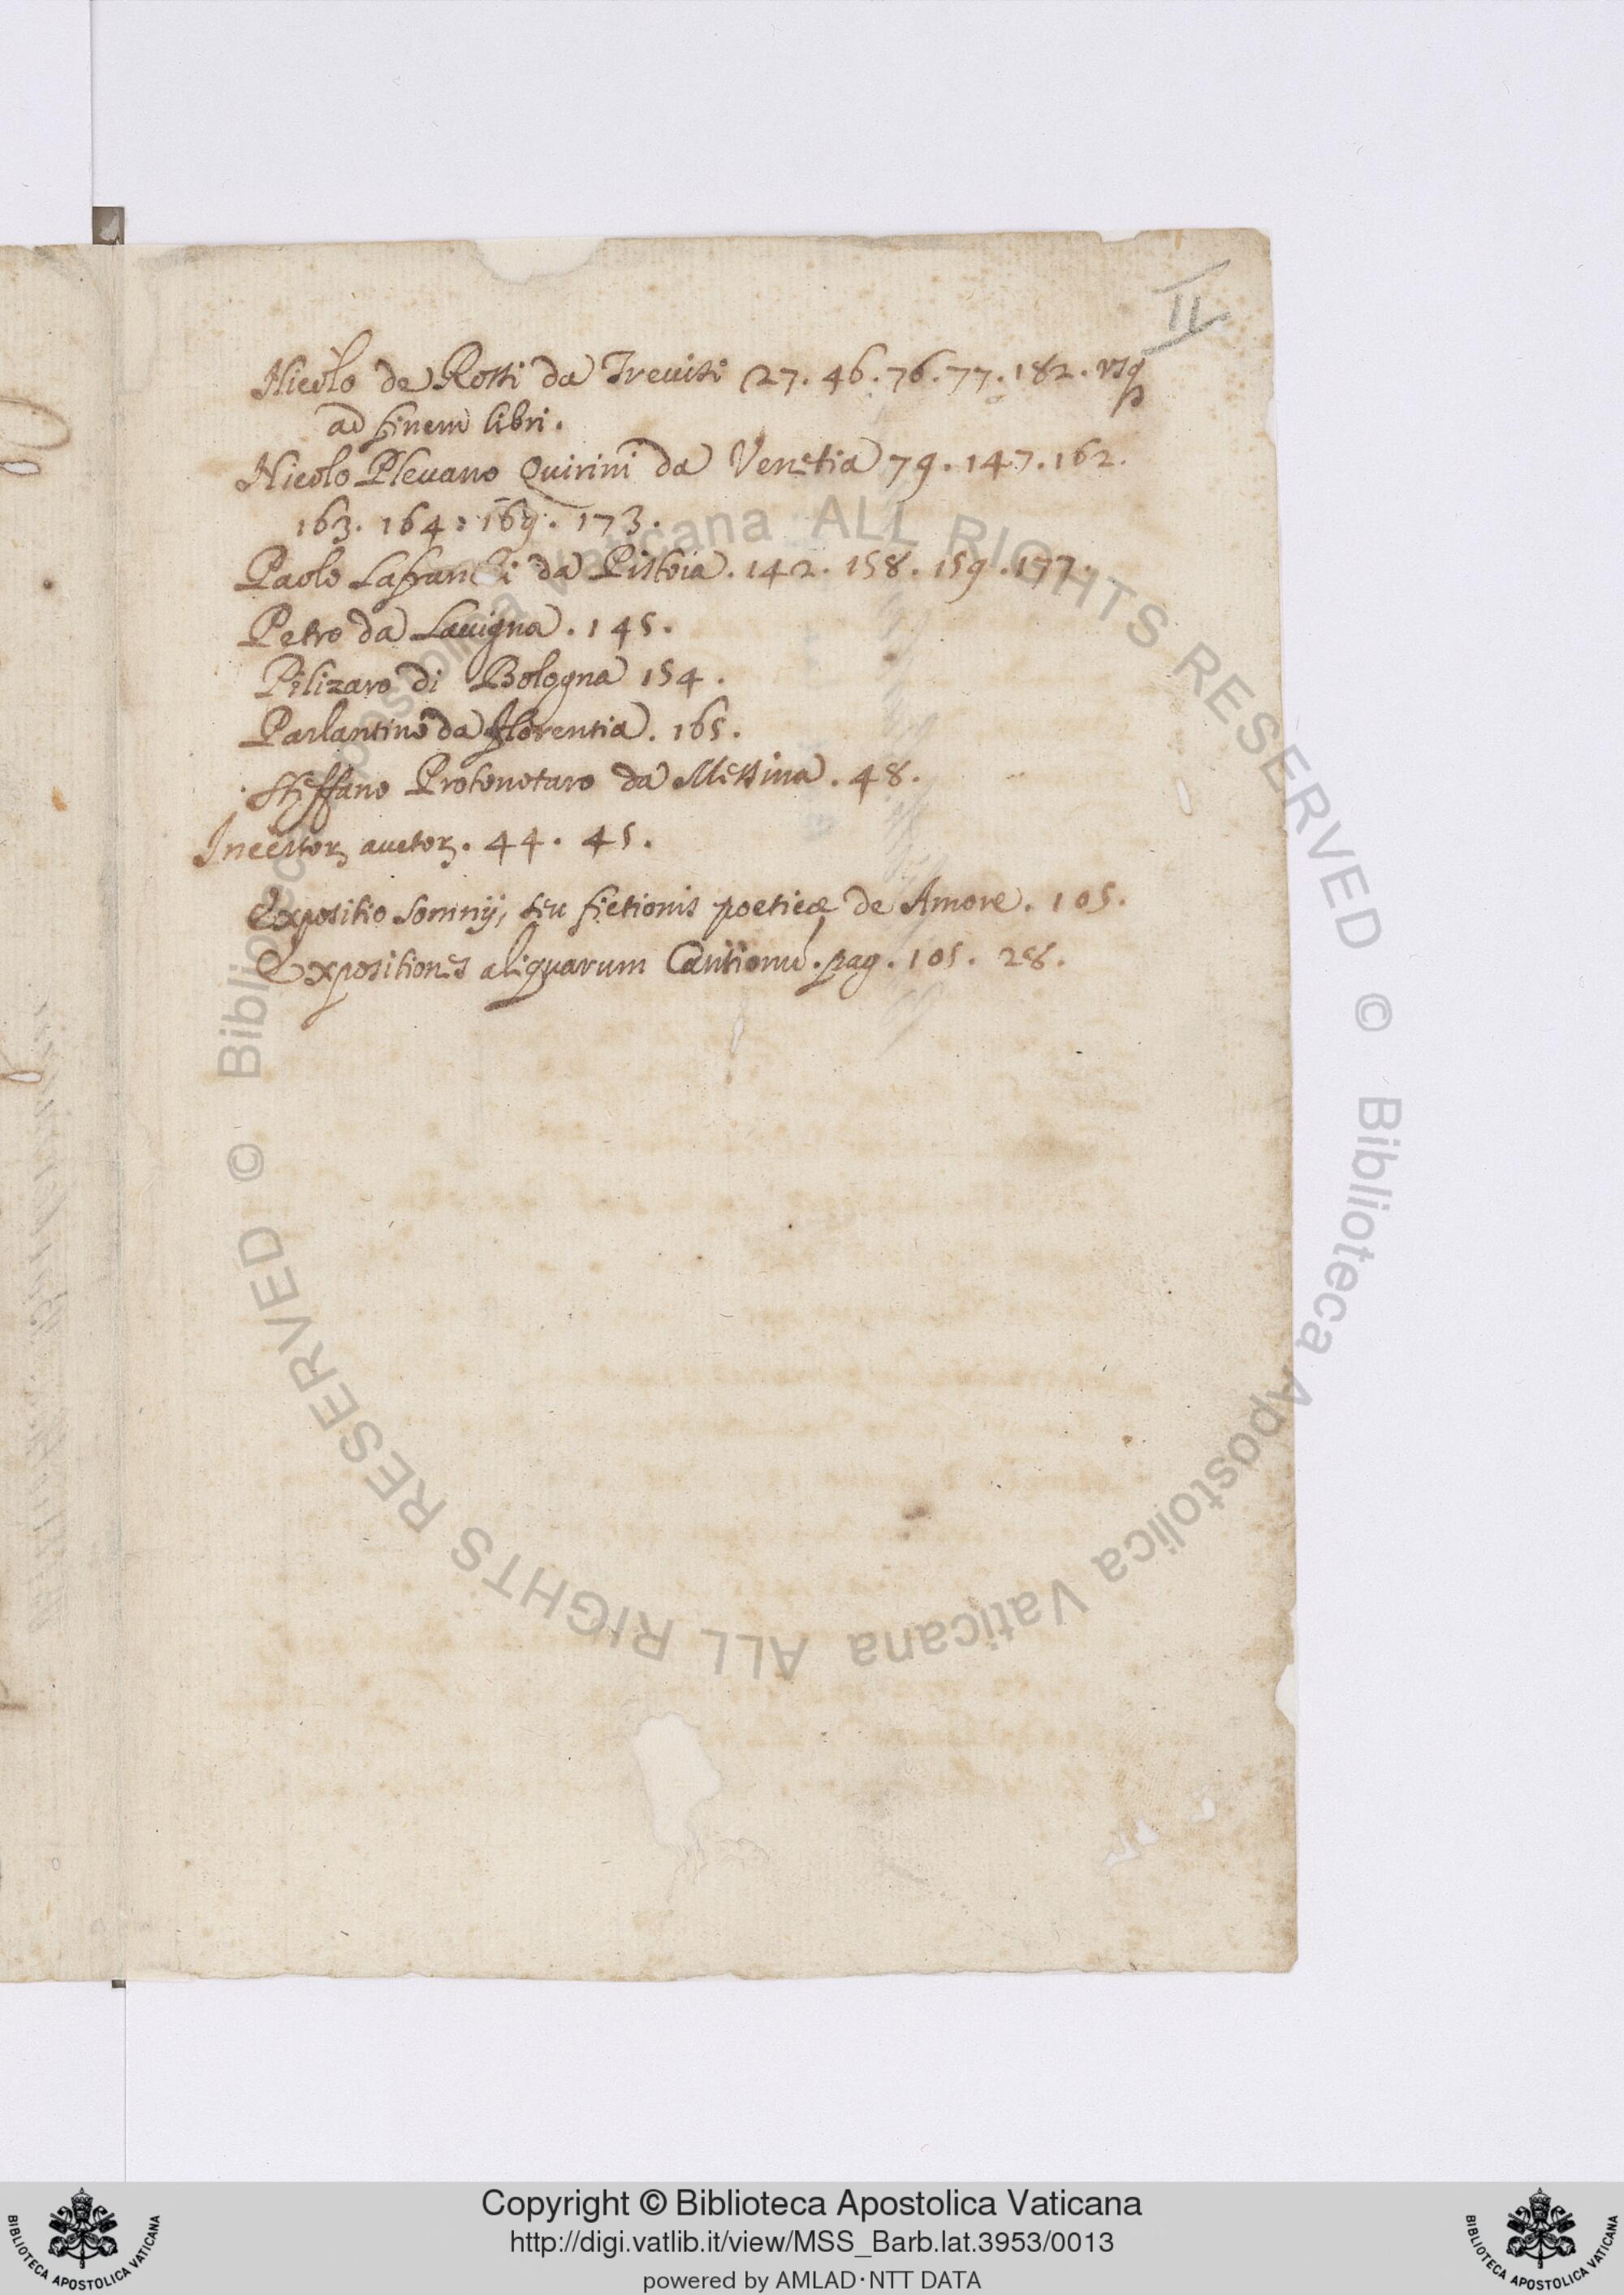 II
Nicolo de Rossi da Trevisi 27. 46. 76. 77. 182. usq
ad finem libri.
Nicolo Plevano Quirini da Venetia 79. 147. 162.
163. 164. 169. 173.
Paolo Lafranchi da Pistoia. 142. 158. 159. 177.
Petro da Lavigna. 145.
Pilizaro di Bologna 154.
Parlantino da Florentia. 165.
Steffano Protonotaro da Messina. 48.
Incertoꝝ auctoꝝ. 44. 45.
Expositio somnij, seu fictionis poeticæ de Amore. 105.
Expositiones aliquarum Cantionũ. pag. 105. 28.
© Biblioteca Apostolica Vaticana ALL RIGHTS RESERVED
© Biblioteca Apostolica Vaticana ALL RIGHTS RESERVED
Copyright © Biblioteca Apostolica Vaticana
http://digi.vatlib.it/view/MSS_Barb.lat.3953/0013
powered by AMLAD·NTT DATA
BIBLIOTECA APOSTOLICA VATICANA
BIBLIOTECA APOSTOLICA VATICANA